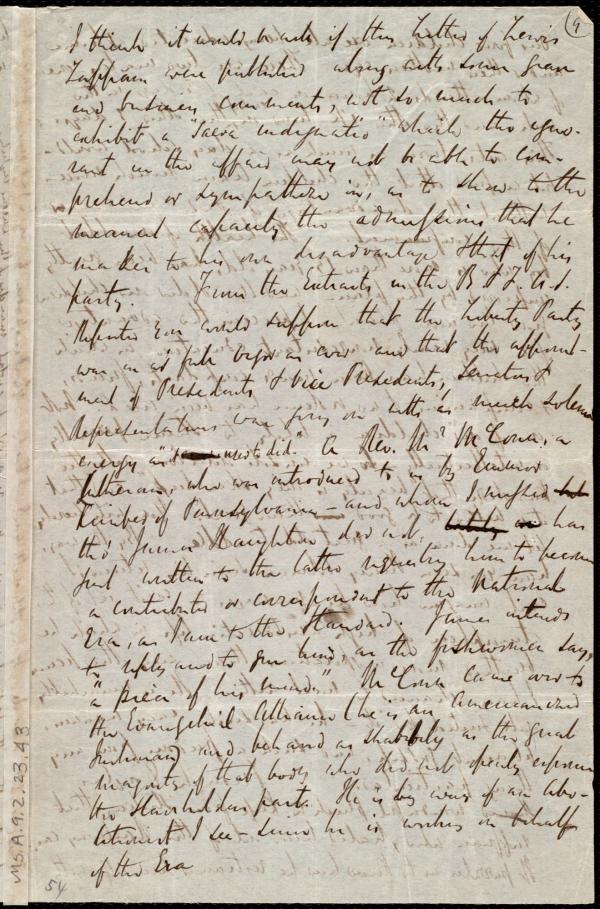 9
I think it would be well if this letter of Lewis
Tappan were published along with some grave
and business comments, not so much to
exhibit a "saeva indignatio" which the igno-
rant in the affair may not be able to com-
prehend or sympathize in, as to show to the
meanest capacity the admissions that he
makes to his own disadvantage & that of his
party. From the Extracts in the B & F. A. S.
Reporter you would suppose that the Liberty Party
was in as full vigor as ever and that the appoint-
ment of Presidents & Vice Presidents, Senators &
Representatives was going on with as much solemn
energy as "used to did." A Rev. Mr McCona, a
Lutheran, who was introduced to us by
Kimber of Pennsylvania — and whom I
tho' James Haughton did not, has
just written to the latter requesting him to become
a contributor or correspondent to the National
Era, as I am to the Standard. James intends
to reply and to give him, as the fishwomen say,
"a piece of his mind." McCona came over to
the Evangelical Alliance (he is an Americanized
Irishman) and behaved as shabbily as the great
majority of that body who did not openly espouse
the Slaveholders part. He is by way of an Abo-
litionist I see — since he is working in behalf
of the Era
54
Ms.A.9.2.23.43